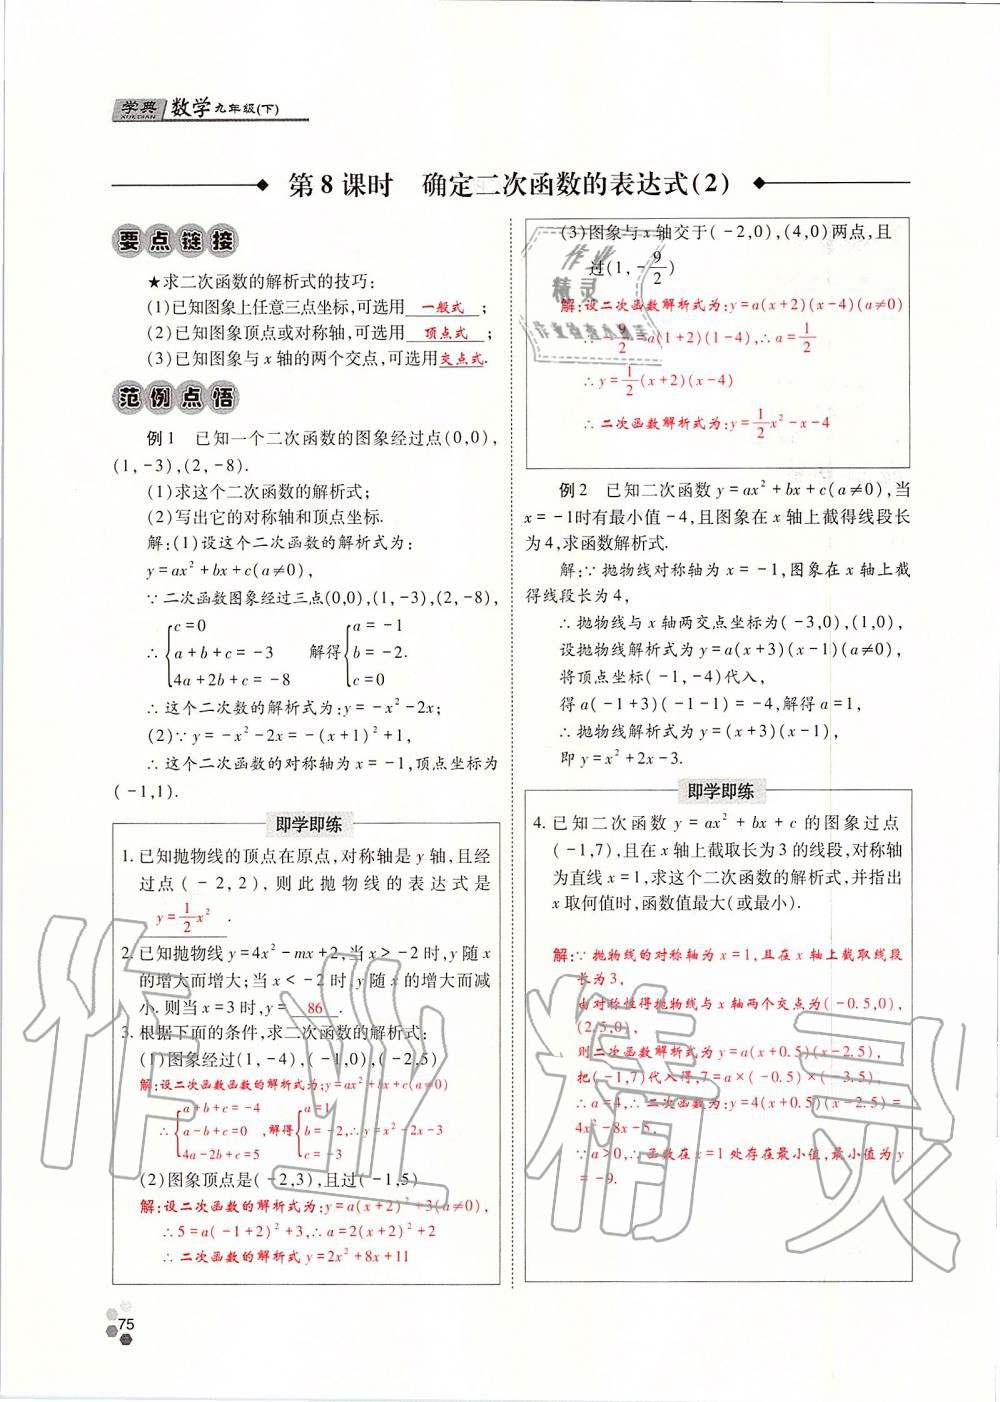 学典 XUEDIAN 数学九年级(下)
第8课时 确定二次函数的表达式(2)
要点链接
★求二次函数的解析式的技巧:
(1)已知图象上任意三点坐标,可选用 一般式 ;
(2)已知图象顶点或对称轴,可选用 顶点式 ;
(3)已知图象与x轴的两个交点,可选用交点式.
范例点悟
例1 已知一个二次函数的图象经过点(0,0),
(1,-3),(2,-8).
(1)求这个二次函数的解析式;
(2)写出它的对称轴和顶点坐标.
解:(1)设这个二次函数的解析式为:
y=ax²+bx+c(a≠0),
∵二次函数图象经过三点(0,0),(1,-3),(2,-8),
∴ { c=0 a+b+c=-3 4a+2b+c=-8 解得 { a=-1 b=-2. c=0
∴这个二次数的解析式为:y=-x²-2x;
(2)∵y=-x²-2x=-(x+1)²+1,
∴这个二次函数的对称轴为x=-1,顶点坐标为
(-1,1).
即学即练
1. 已知抛物线的顶点在原点,对称轴是y轴,且经
过点(-2,2),则此抛物线的表达式是
y=1/2x² .
2. 已知抛物线y=4x²-mx+2,当x>-2时,y随x
的增大而增大;当x<-2时,y随x的增大而减
小.则当x=3时,y= 86 .
3. 根据下面的条件,求二次函数的解析式:
(1)图象经过(1,-4),(-1,0),(-2,5)
解:设二次函数函数的解析式为;y=ax²+bx+c(a≠0)
∴ { a+b+c=-4 a-b+c=0 4a-2b+c=5 ,解得 { a=1 b=-2 c=-3 ,∴y=x²-2x-3
(2)图象顶点是(-2,3),且过(-1,5)
解:设二次函数的解析式为:y=a(x+2)²+3(a≠0),
∴5=a(-1+2)²+3,∴a=2(x+2)²+2
∴二次函数的解析式y=2x²+8x+11
(3)图象与x轴交于(-2,0),(4,0)两点,且
过(1,-9/2)
解:设二次函数解析式为:y=a(x+2)(x-4)(a≠0)
∴-9/2=a(1+2)(1-4),∴a=1/2
∴y=1/2(x+2)(x-4)
∴二次函数解析式为:y=1/2x²-x-4
例2 已知二次函数y=ax²+bx+c(a≠0),当
x=-1时有最小值-4,且图象在x轴上截得线段长
为4,求函数解析式.
解:∵抛物线对称轴为x=-1,图象在x轴上截
得线段长为4,
∴抛物线与x轴两交点坐标为(-3,0),(1,0),
设抛物线解析式为y=a(x+3)(x-1)(a≠0),
将顶点坐标(-1,-4)代入,
得a(-1+3)(-1-1)=-4,解得a=1,
∴抛物线解析式为y=(x+3)(x-1),
即y=x²+2x-3.
即学即练
4. 已知二次函数y=ax²+bx+c的图象过点
(-1,7),且在x轴上截取长为3的线段,对称轴
为直线x=1,求这个二次函数的解析式,并指出
x取何值时,函数值最大(或最小).
解:∵抛物线的对称轴为x=1,且在x轴上截取线段
长为3,
由对称性得抛物线与x轴两个交点为(-0.5,0),
(2.5,0),
则二次函数解析式为y=a(x+0.5)(x-2.5),
把(-1,7)代入得,7=a×(-0.5)×(-3.5),
∴a=4,∴二次函数为:y=4(x+0.5)(x-2.5)=
4x²-8x-5,
∵a>0,∴函数在x=1处存在最小值,最小值为y
=-9.
75
作业精灵